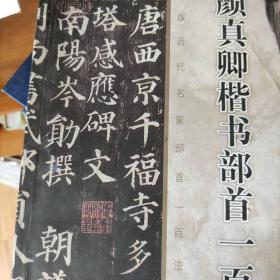 颜真卿楷书部首一百
版历代名家部首一百法
唐西京千福寺多
塔感應碑文
南陽岑勛撰
朝議
判尚書武部員